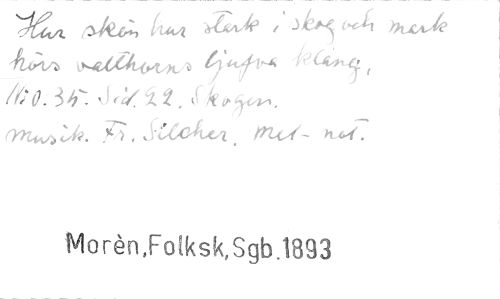 Hur skön hur stark i skog och mark
hörs valthorns ljufva klang,
No. 35. Sid. 22. Skogen.
musik. Fr. Silcher. met- not.
Morèn,Folksk,Sgb.1893